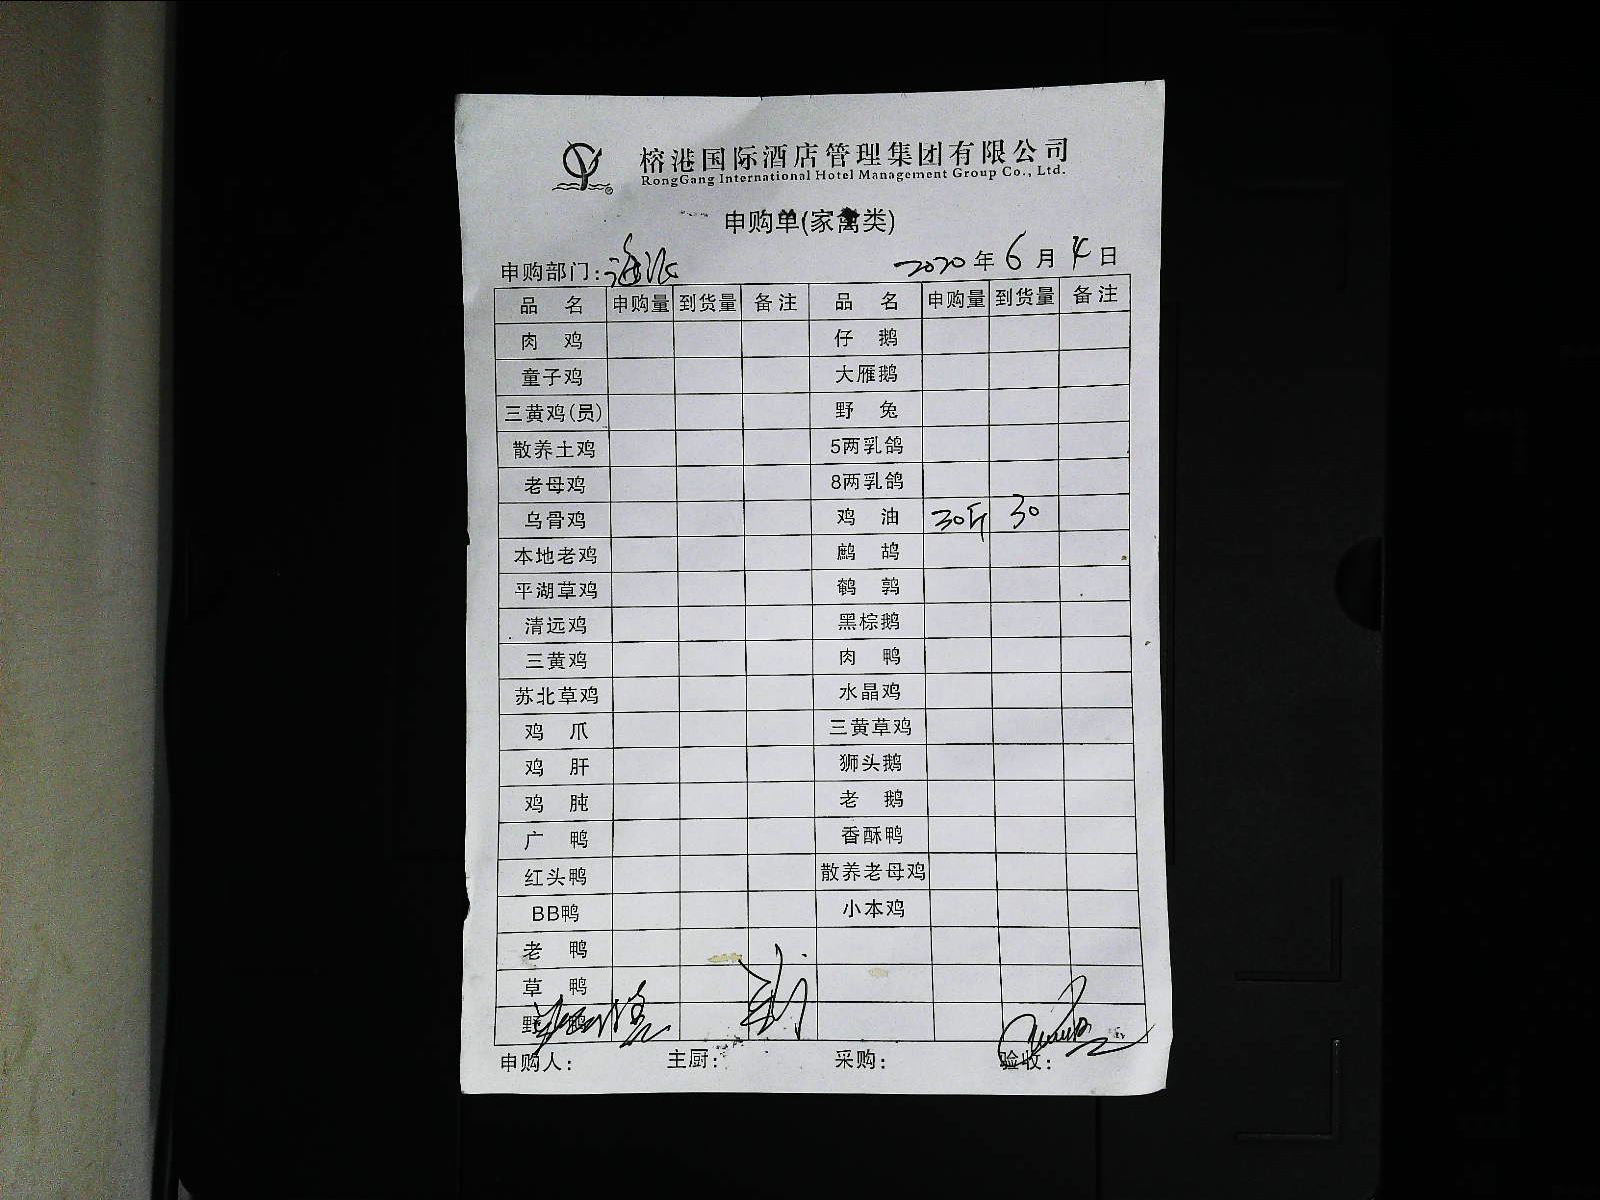 榕港国际酒店管理集团有限公司
RongGang International Hotel Management Group Co., Ltd.
申购单(家禽类)
申购部门: 2020年6月4日
品名 申购量 到货量 备注 品名 申购量 到货量 备注
肉鸡 仔鹅
童子鸡 大雁鹅
三黄鸡(员) 野兔
散养土鸡 5两乳鸽
老母鸡 8两乳鸽
乌骨鸡 鸡油 30斤 30
本地老鸡 鹧鸪
平湖草鸡 鹌鹑
清远鸡 黑棕鹅
三黄鸡 肉鸭
苏北草鸡 水晶鸡
鸡爪 三黄草鸡
鸡肝 狮头鹅
鸡肫 老鹅
广鸭 香酥鸭
红头鸭 散养老母鸡
BB鸭 小本鸡
老鸭
草鸭
野鸭
申购人: 主厨: 采购: 验收: